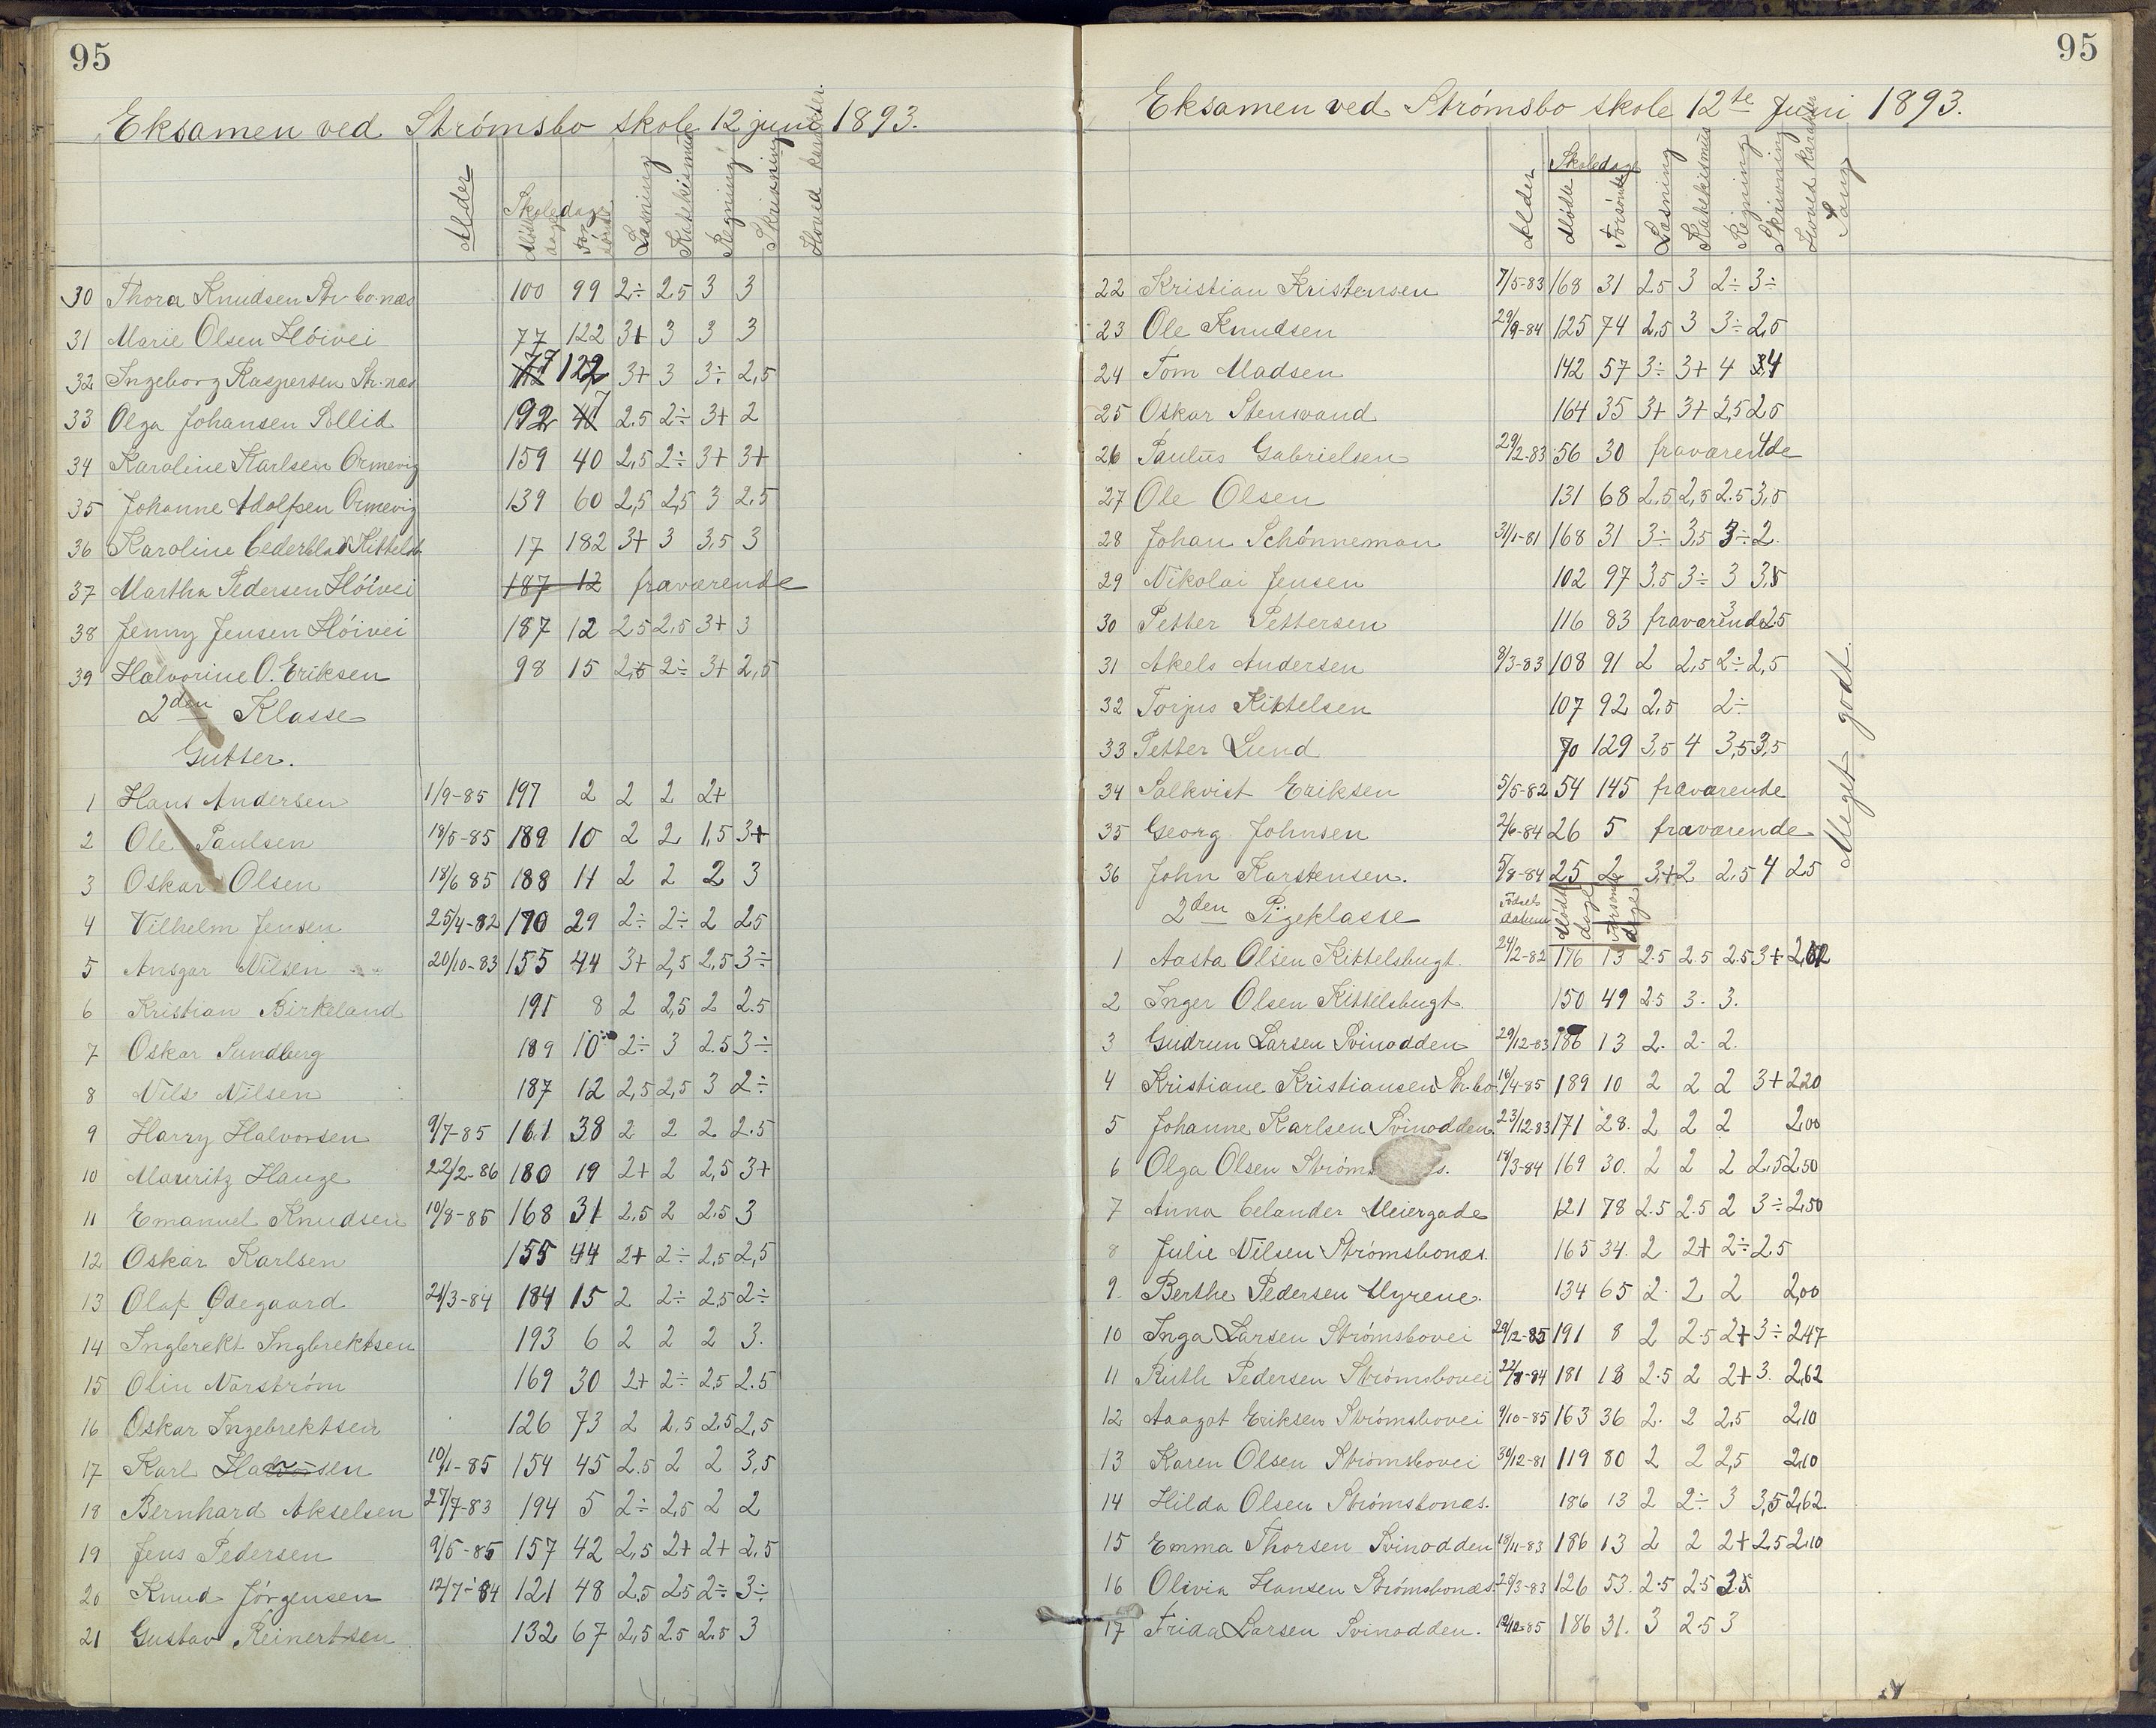 95
Eksamen ved Strómsbo skole 12 juni 1893.
Alder
Skoledage
Mødte dage
Forsømte
Læsning
Katekismus
Regning
Skrivning
Hoved karakter
30 Thora Knudsen Str. bo. næs 100 99 2÷ 2.5 3 3
31 Marie Olsen Hóivei 77 122 3+ 3 3 3
32 Ingeborg Kaspersen Str. næs 77 122 3+ 3 3÷ 2,5
33 Olga Johansen Sollid 192 7 2.5 2÷ 3+ 2
34 Karoline Karlsen Ormevig 159 40 2,5 2÷ 3+ 3+
35 Johanne Adolfsen Ormevig 139 60 2,5 2,5 3 2.5
36 Karoline Cederblad Kittelsb. 17 182 3+ 3 3,5 3
37 Martha Pedersen Hóivei 187 12 fraværende
38 Jenny Jensen Hóivei 187 12 2.5 2.5 3+ 3
39 Halvorine O. Eriksen 98 15 2,5 2÷ 3+ 2,5
2den Klasse
Gutter.
1 Hans Andersen 1/9-85 197 2 2 2 2+
2 Ole Paulsen 18/5-85 189 10 2 2 1,5 3+
3 Oskar Olsen 18/6 85 188 11 2 2 2 3
4 Vilhelm Jensen 25/4-82 170 29 2÷ 2÷ 2 2.5
5 Ansgar Nilsen 20/10-83 155 44 3+ 2,5 2,5 3÷
6 Kristian Birkeland 191 8 2 2,5 2 2.5
7 Oskar Sundberg 189 10 2÷ 3 2.5 3÷
8 Nils Nilsen 187 12 2,5 2,5 3 2÷
9 Harry Halvorsen 9/7-85 161 38 2 2 2 2.5
10 Mauritz Hauge 22/2-86 180 19 2+ 2 2,5 3+
11 Emanuel Knudsen 10/8-85 168 31 2.5 2 2.5 3
12 Oskar Karlsen 155 44 2+ 2÷ 2,5 2,5
13 Olaf Ødegaard 21/3-84 184 15 2 2÷ 2,5 2÷
14 Ingbrekt Ingbrektsen 193 6 2 2 2 3.
15 Olin Norström 169 30 2+ 2÷ 2,5 2.5
16 Oskar Ingebrektsen 126 73 2 2.5 2.5 2,5
17 Karl Halvorsen 10/1-85 154 45 2.5 2 2 3,5
18 Bernhard Akselsen 27/7-83 194 5 2÷ 2,5 2 2
19 Jens Pedersen 9/5-85 157 42 2,5 2+ 2+ 2,5
20 Knud Jórgensen 12/7-84 121 48 2,5 2.5 2÷ 3÷
21 Gustav Reinertsen 132 67 2,5 2.5 2.5 3
95
Eksamen ved Strómsbo skole 12te Juni 1893.
Alder
Skoledage
Mødte
Forsømte
Læsning
Katekismus
Regning
Skrivning
Hoved karakter
Sang
22 Kristian Kristensen 7/5-83 168 31 2.5 3 2÷ 3÷
23 Ole Knudsen 29/9-84 125 74 2,5 3 3÷ 2,5
24 Tom Madsen 142 57 3÷ 3+ 4 3,4
25 Oskar Stensvand 164 35 3+ 3+ 2,5 2.5
26 Paulus Gabrielsen 29/2-83 56 30 fraværende
27 Ole Olsen 131 68 2.5 2,5 2.5 3,5
28 Johan Schónneman 31/1-81 168 31 3÷ 3,5 3÷ 2.
29 Nikolai Jensen 102 97 3,5 3÷ 3 3,5
30 Petter Pettersen 116 83 fraværende 3 2.5
31 Akels Andersen 8/3-83 108 91 2 2,5 2÷ 2,5
32 Torjus Kittelsen 107 92 2,5 2÷
33 Petter Lund 70 129 3,5 4 3,5 3,5
34 Salkvist Eriksen 5/5-82 54 145 fraværende
35 Georg Johnsen 2/6-84 26 5 fraværende
36 John Karstensen. 5/8-84 25 2 3+ 2 2.5 4 2.5
Meget godt.
2den Pigeklasse
Fødsels datum
Mødte dage
Forsømte dage
1 Aasta Olsen Kittelsbugt. 24/2-82 176 13 2.5 2.5 2.5 3+ 2,62
2 Inger Olsen Kittelsbugt 150 49 2.5 3. 3.
3 Gudrun Larsen Svinodden 29/12-83 186 13 2. 2. 2.
4 Kristiane Kristiansen Str. bo. 16/4-85 189 10 2 2 2 3+ 2,20
5 Johanne Karlsen Svinodden. 23/12-83 171 28. 2 2 2 2,00
6 Olga Olsen Stróms 18/3-84 169 30. 2 2 2 2,5 2,50
7 Anna Celander Meiergade 121 78 2.5 2.5 2 3÷ 2,50
8 Julie Nilsen Strómsbonæs. 165 34. 2 2+ 2÷ 2.5
9. Berthe Pedersen Myrene. 134 65 2. 2 2 2,00
10 Inga Larsen Strómsbovei 29/12-85 191 8 2 2.5 2+ 3÷ 2,47
11 Ruth Pedersen Strómsbovei 22/8-84 181 18 2.5 2 2+ 3. 2,62
12 Aagot Eriksen Strómsbovei 9/10-85 163 36 2. 2 2,5 2,10
13 Karen Olsen Strómsbovei 30/12-81 119 80 2 2 2,5 2,10
14 Hilda Olsen Strómsbonæs. 186 13 2 2÷ 3 3,5 2,62
15 Emma Thorsen Svinodden 19/11-83 186 13 2 2 2+ 2,5 2,10
16 Olivia Hansen Strómsbonæs 25/3-83 126 53. 2.5 2.5 3.5
17 Frida Larsen Svinodden. 12/12-85 186 31. 3 2.5 3